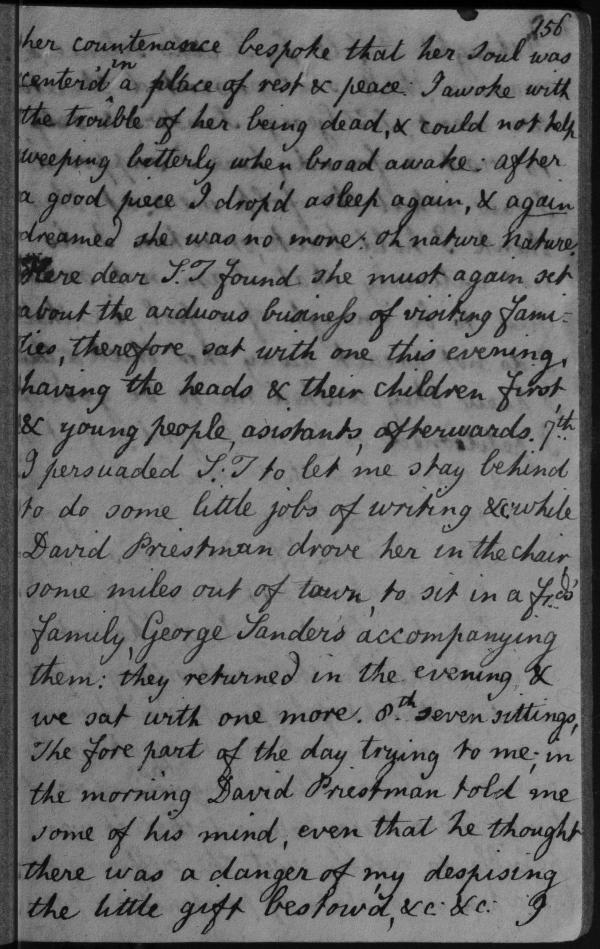 256
her countenance bespoke that her soul was
center'd in a place of rest & peace. I awoke with
the trouble of her being dead, & could not help
weeping bitterly when broad awake: after
a good piece I drop'd asleep again, & again
dreamed she was no more: oh nature nature.
Here dear S:T found she must again set
about the arduous business of visiting fami-
lies, therefore sat with one this evening,
having the heads & their children first
& young people, asistants, afterwards. 7th.
I persuaded S:T to let me stay behind
to do some little jobs of writing &c: while
David Priestman drove her in the chair
some miles out of town, to sit in a frds'
family, George Sanders accompanying
them: they returned in the evening, &
we sat with one more. 8th. seven sittings,
The fore part of the day trying to me; in
the morning David Priestman told me
some of his mind, even that he thought
there was a danger of my despising
the little gift bestow'd, &c: &c: I